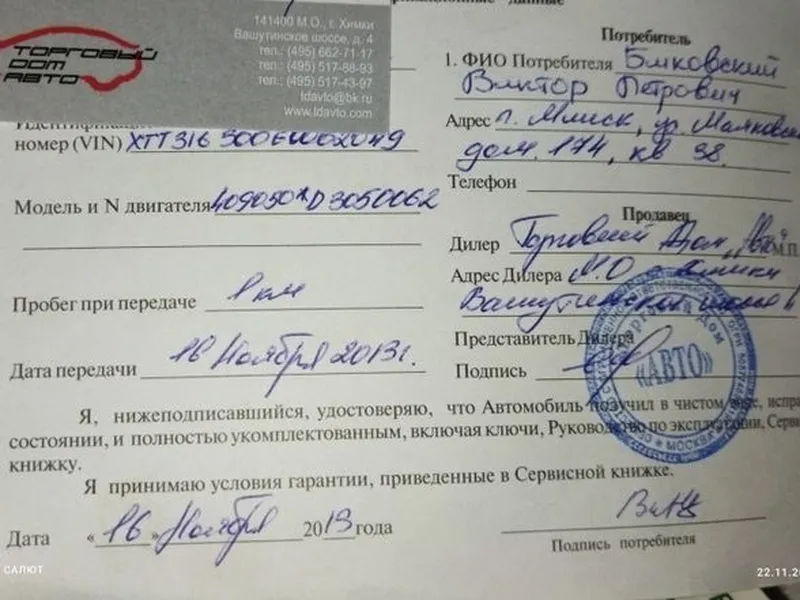 данные
ТОРГОВЫЙ
ДОМ
АВТО
141400 М.О., г. Химки
Вашутинское шоссе, д. 4
тел.: (495) 662-71-17
тел.: (495) 517-88-93
тел.: (495) 517-43-97
tdavto@bk.ru
www.tdavto.com
номер (VIN)
Модель и N двигателя 409050*D3050062
Пробег при передаче 1 км
Дата передачи 16 Ноября 2013г.
Потребитель
1. ФИО Потребителя
Виктор Петрович
Адрес г. Минск, ул. Маяковско
дом. 174, кв 38.
Телефон
Продавец
Дилер Торговый Дом, Авто М.П.
Адрес Дилера М.О Химки
Представитель Дилера
Подпись
Торговый Дом
«АВТО»
МОСКВА
Я, нижеподписавшийся, удостоверяю, что Автомобиль получил в чистом виде, испра
состоянии, и полностью укомплектованным, включая ключи, Руководство по эксплуатации, Серви
книжку.
Я принимаю условия гарантии, приведенные в Сервисной книжке.
Дата «16» Ноября 2013 года
Подпись потребителя
САЛЮТ
22.11.20